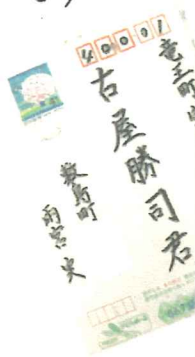 400 01
竜王町
古屋勝司君
敷島町
雨宮